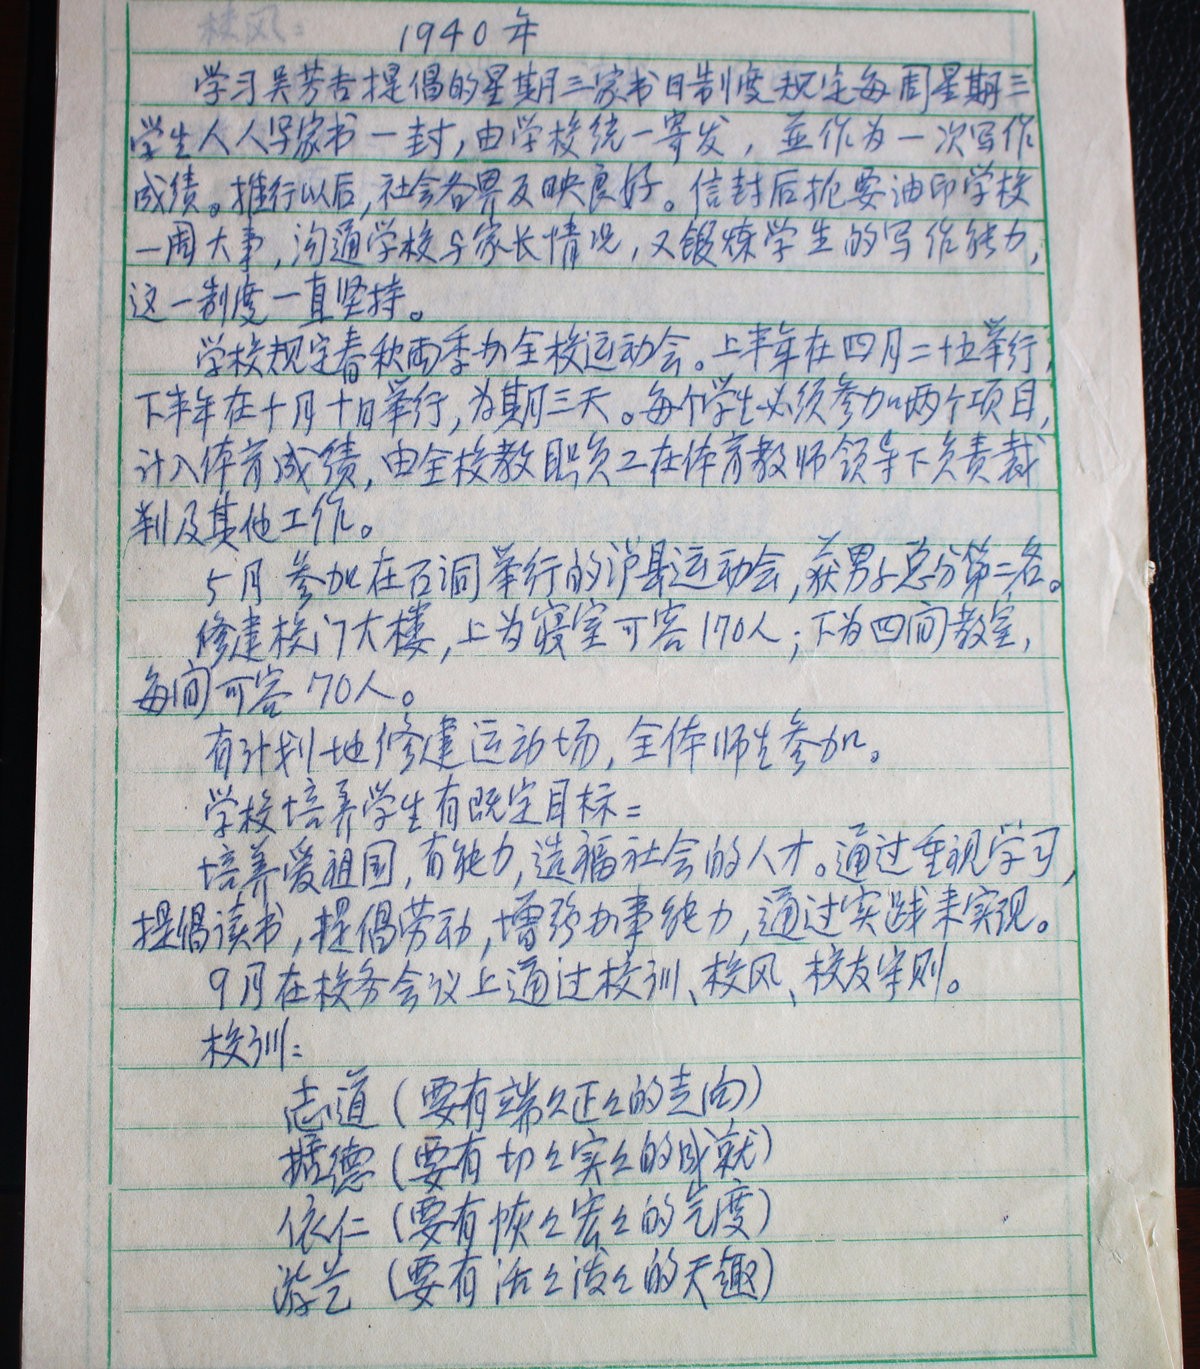 校风：
1940年
学习吴芳吉提倡的星期三家书日制度规定每周星期三
学生人人写家书一封，由学校统一寄发，並作为一次写作
成绩。推行以后，社会各界反映良好。信封后扼要油印学校
一周大事，沟通学校与家长情况，又锻炼学生的写作能力，
这一制度一直坚持。
学校规定春秋两季办全校运动会。上半年在四月二十五举行，
下半年在十月十日举行，为期三天。每个学生必须参加两个项目，
计入体育成绩，由全校教职员工在体育教师领导下负责裁
判及其他工作。
5月参加在石洞举行的泸县运动会，获男子总分第二名。
修建校门大楼，上为寝室可容170人；下为四间教室，
每间可容70人。
有计划地修建运动场，全体师生参加。
学校培养学生有既定目标：
培养爱祖国，有能力，造福社会的人才。通过重视学习，
提倡读书，提倡劳动，增强办事能力，通过实践来实现。
9月在校务会议上通过校训、校风、校友守则。
校训：
志道（要有端々正々的志向）
据德（要有切々实々的成就）
依仁（要有恢々宏々的气度）
游艺（要有活々泼々的天趣）